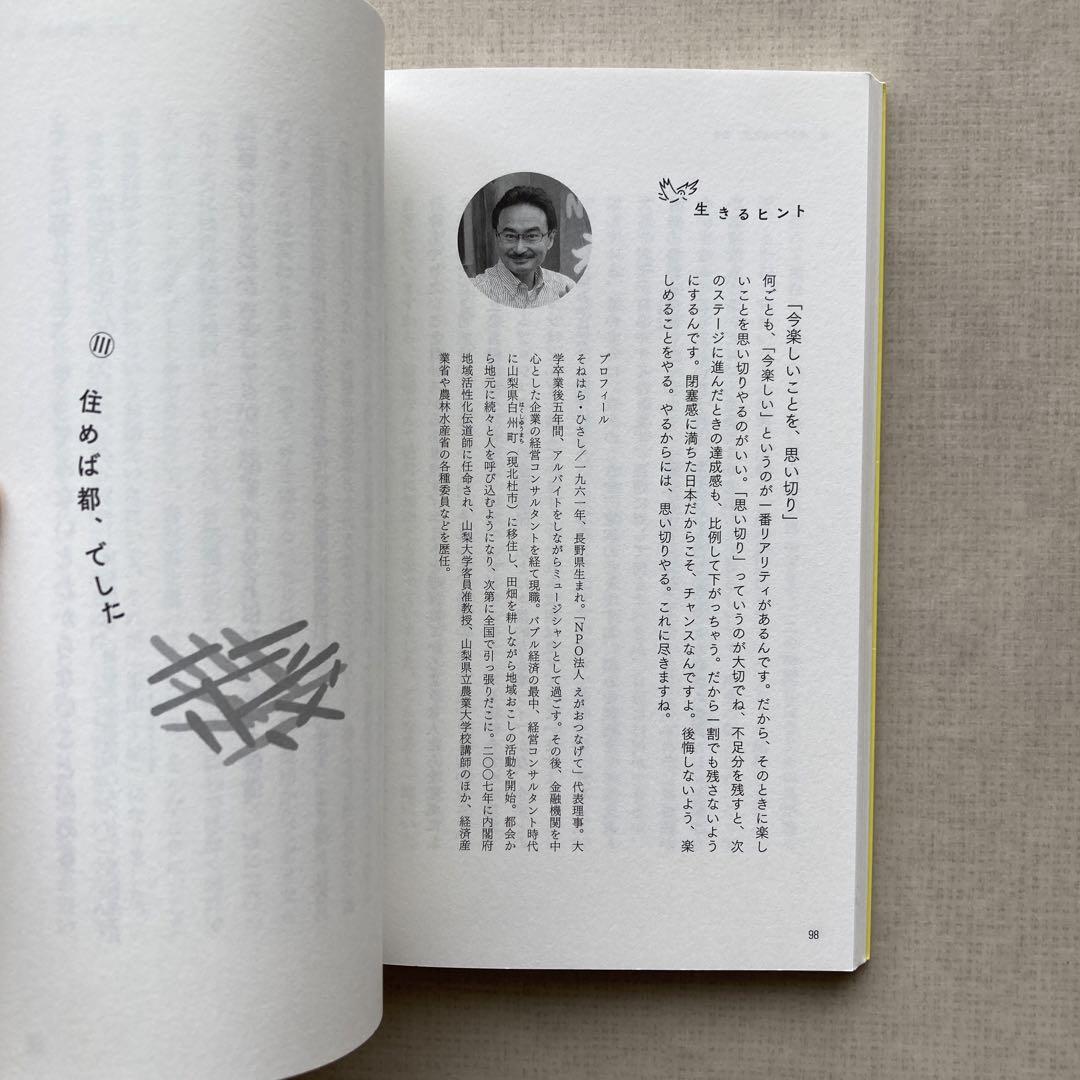 生きるヒント
「今楽しいことを、思い切り」
何ごとも、「今楽しい」というのが一番リアリティがあるんです。だから、そのときに楽し
いことを思い切りやるのがいい。「思い切り」っていうのが大切でね、不足分を残すと、次
のステージに進んだときの達成感も、比例して下がっちゃう。だから一割でも残さないよう
にするんです。閉塞感に満ちた日本だからこそ、チャンスなんですよ。後悔しないよう、楽
しめることをやる。やるからには、思い切りやる。これに尽きますね。
プロフィール
そねはら・ひさし／一九六一年、長野県生まれ。「NPO法人 えがおつなげて」代表理事。大
学卒業後五年間、アルバイトをしながらミュージシャンとして過ごす。その後、金融機関を中
心とした企業の経営コンサルタントを経て現職。バブル経済の最中、経営コンサルタント時代
に山梨県白州町（現北杜市）に移住し、田畑を耕しながら地域おこしの活動を開始。都会か
はくしゅうまち
ら地元に続々と人を呼び込むようになり、次第に全国で引っ張りだこに。二〇〇七年に内閣府
地域活性化伝道師に任命され、山梨大学客員准教授、山梨県立農業大学校講師のほか、経済産
業省や農林水産省の各種委員などを歴任。
98
III 住めば都、でした